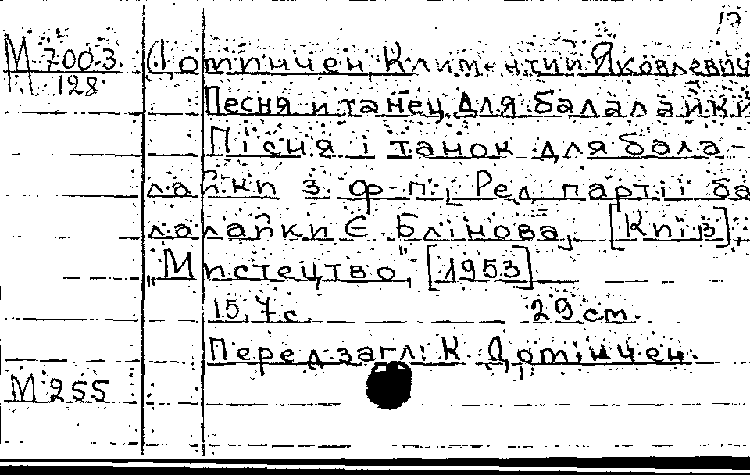 М 7003 Домінчен Климентий Яковлевич
128
Песня и танец для балалайки
Пісня і танок для бала-
лайки з ф-п., Ред партії ба
лалайки Є Блінова, [Київ],
„Мистецтво" [1953]
15, 7 с. 29 см.
Перед загл: К. Домінчен.
М 255